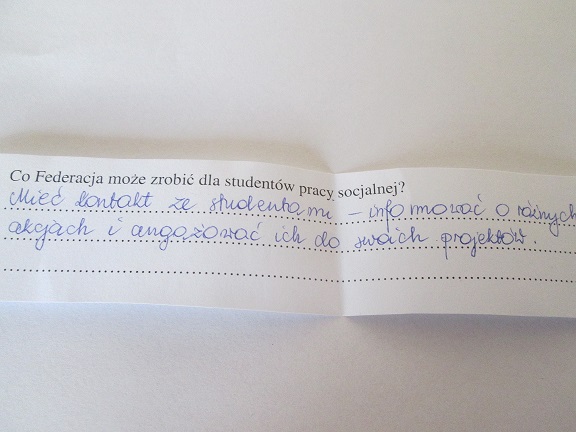 Co Federacja może zrobić dla studentów pracy socjalnej?
Mieć kontakt ze studentami – infomować o różnych
akcjach i angażować ich do swoich projektów.